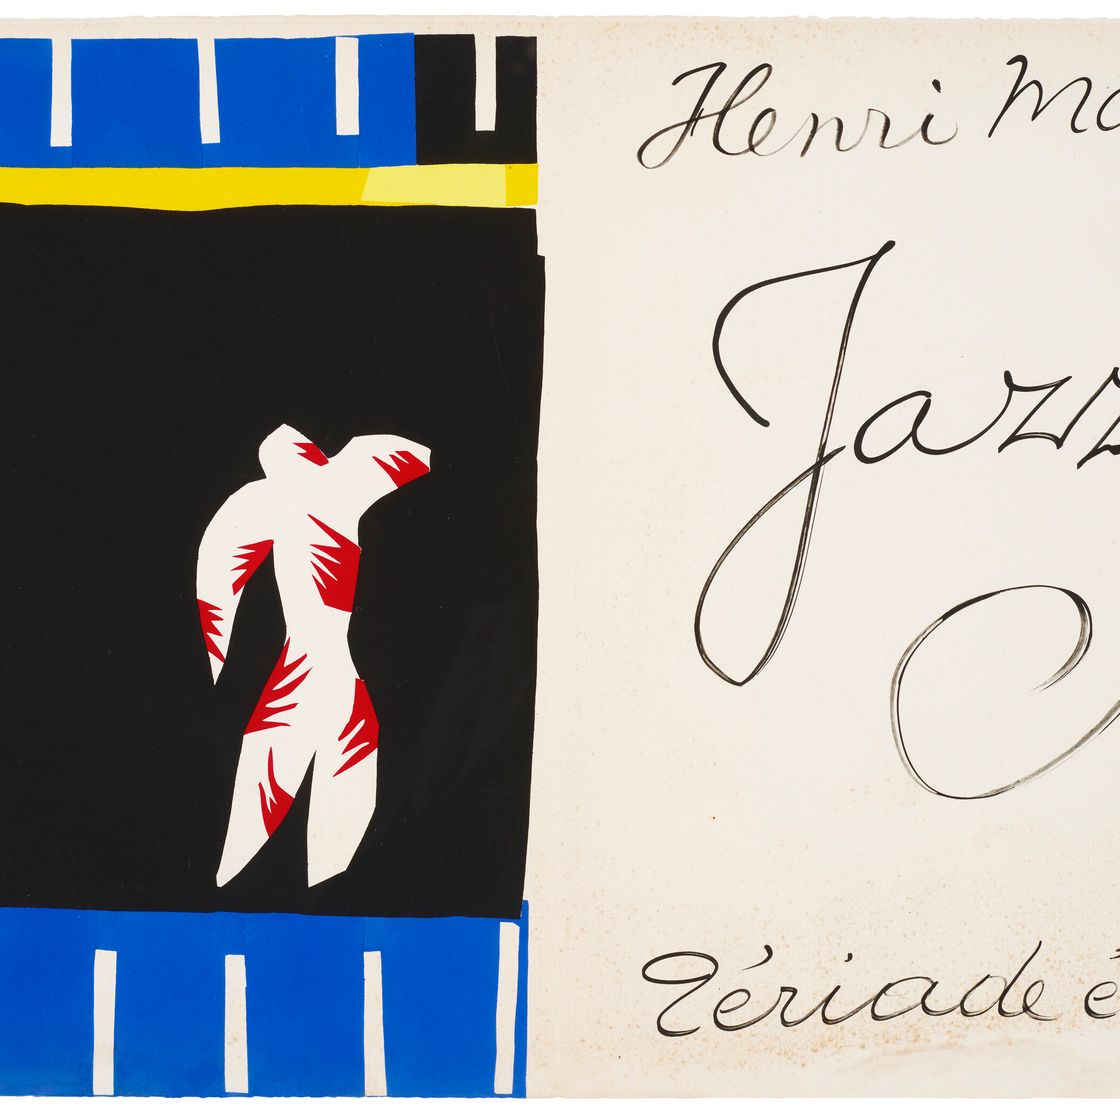 Henri Ma
Jazz
Tériade é